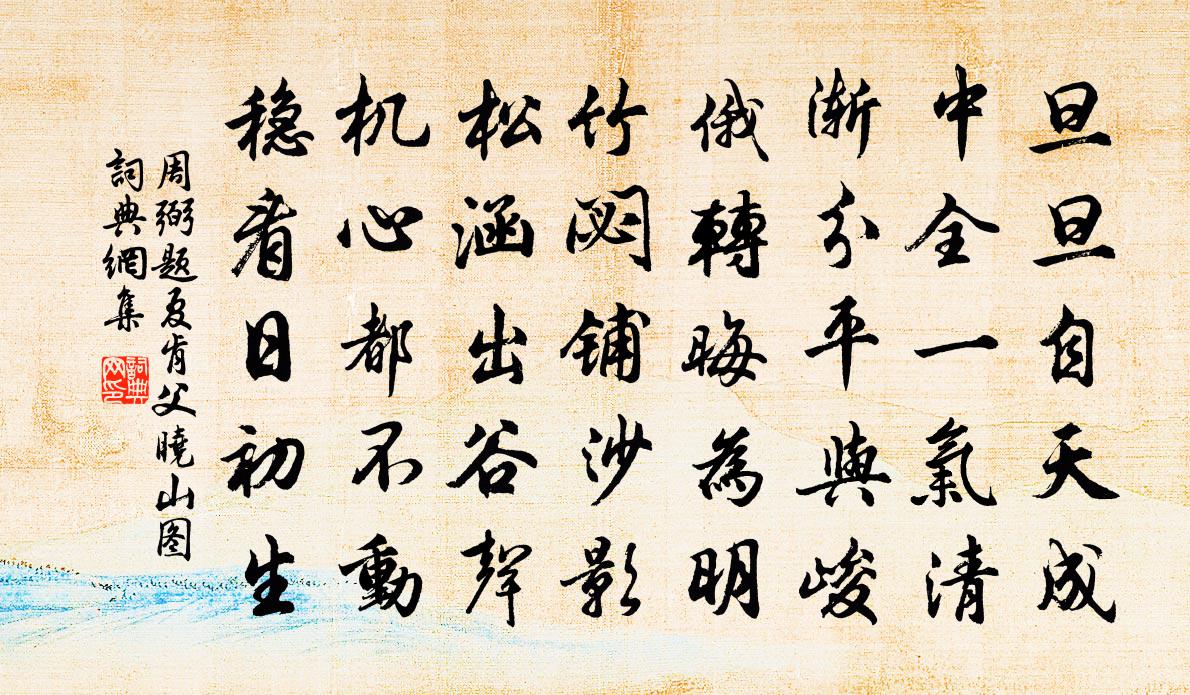 旦旦自天成
中全一氣清
渐分平與峻
俄轉晦為明
竹閟铺沙影
松涵出谷聲
机心都不動
稳看日初生
周弼题夏肯父曉山图
詞典網集
詞典
网印